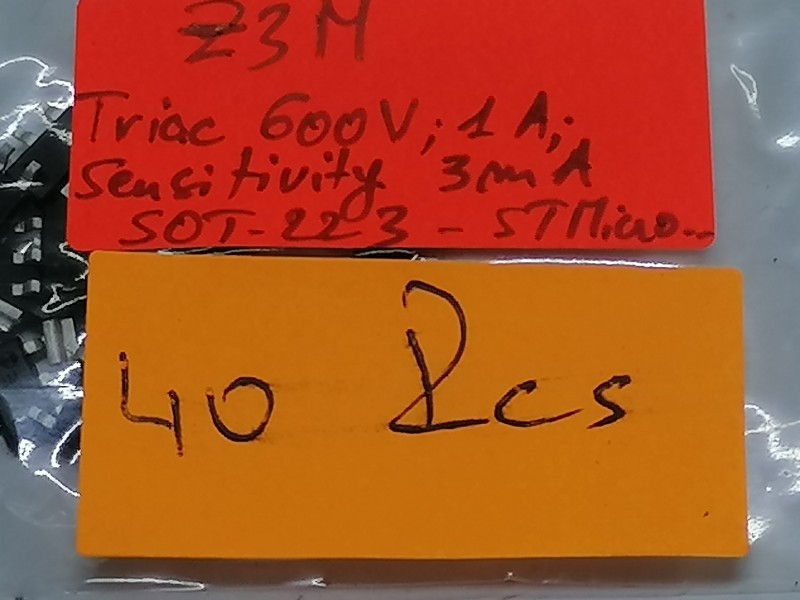 Z3M
Triac 600V; 1A;
Sensitivity 3mA
SOT-223 - STMicro...
40 Pcs